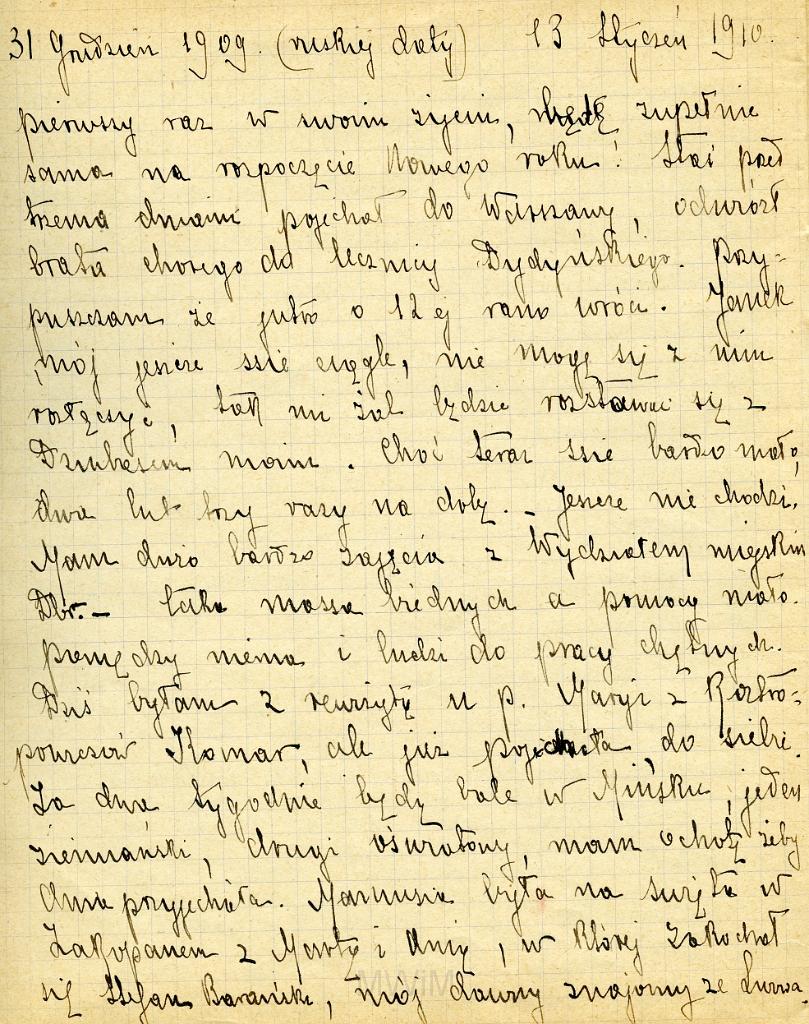 31 Grudzień 1909. (ruskiej daty) 13 Styczeń 1910.
pierwszy raz w swoim życiu, będę zupełnie
sama na rozpoczęcie Nowego roku! Staś przed
trzema dniami pojechał do Warszawy, odwiózł
brata chorego do lecznicy Dydyńskiego. Przy=
puszczam że jutro o 12 ej rano wróci. Janek
mój jeszcze ssie ciągle, nie mogę się z nim
rozłączyć, tak mi żal będzie rozstawać się z
Dziubasem moim. Choć teraz ssie bardzo mało,
dwa lub trzy razy na dobę. _ Jeszcze nie chodzi.
Mam dużo bardzo zajęcia z Wydziałem miejskim
Dbr. – taka massa biednych a pomocy mało.
pieniędzy niema i ludzi do pracy chętnych.
Dziś byłam z rewizytą u p. Maryi z
Komar, ale już pojechała do siebie.
Za dwa tygodnie będą bale w Mińsku, jeden
ziemiański, drugi oświatowy, mam ochotę żeby
Ania przyjechała. Mamusia była na święta w
Zakopanem z Martą i Anią, w której zakochał
się Stefan Barański, mój dawny znajomy ze Lwowa.
MWiM